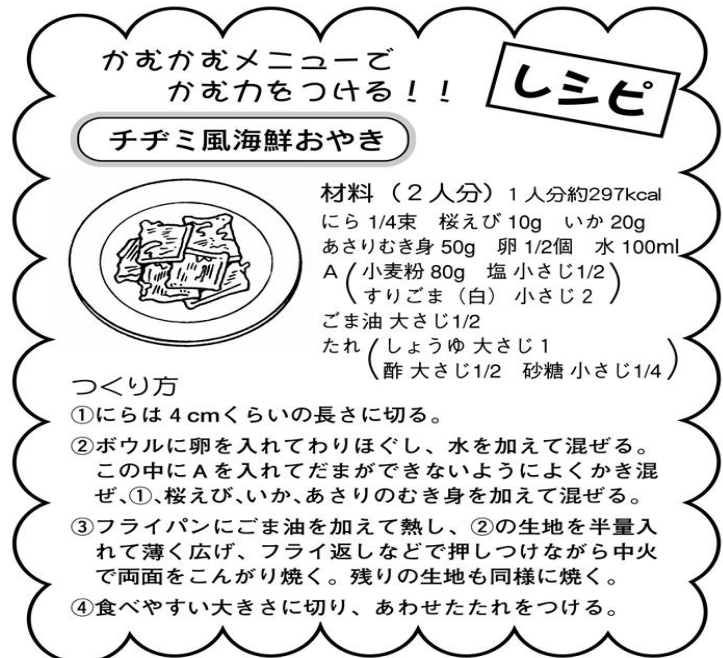 かむかむメニューで
かむ力をつける！！
レシピ
チヂミ風海鮮おやき
材料（２人分）１人分約297kcal
にら 1/4束　桜えび 10g　いか 20g
あさりむき身 50g　卵 1/2個　水 100ml
A（小麦粉 80g　塩 小さじ1/2
すりごま（白）　小さじ２）
ごま油 大さじ1/2
たれ（しょうゆ 大さじ１
酢 大さじ1/2　砂糖 小さじ1/4）
つくり方
①にらは４cmくらいの長さに切る。
②ボウルに卵を入れてわりほぐし、水を加えて混ぜる。
この中にＡを入れてだまができないようによくかき混
ぜ、①、桜えび、いか、あさりのむき身を加えて混ぜる。
③フライパンにごま油を加えて熱し、②の生地を半量入
れて薄く広げ、フライ返しなどで押しつけながら中火
で両面をこんがり焼く。残りの生地も同様に焼く。
④食べやすい大きさに切り、あわせたたれをつける。